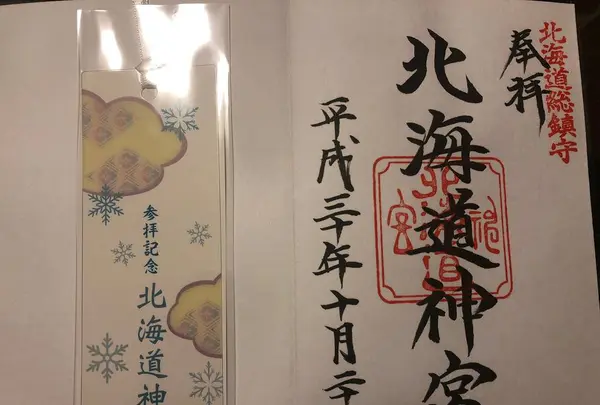 北海道総鎮守
奉拝
北海道神宮
平成三十年十月二十
参拝記念
北海道神